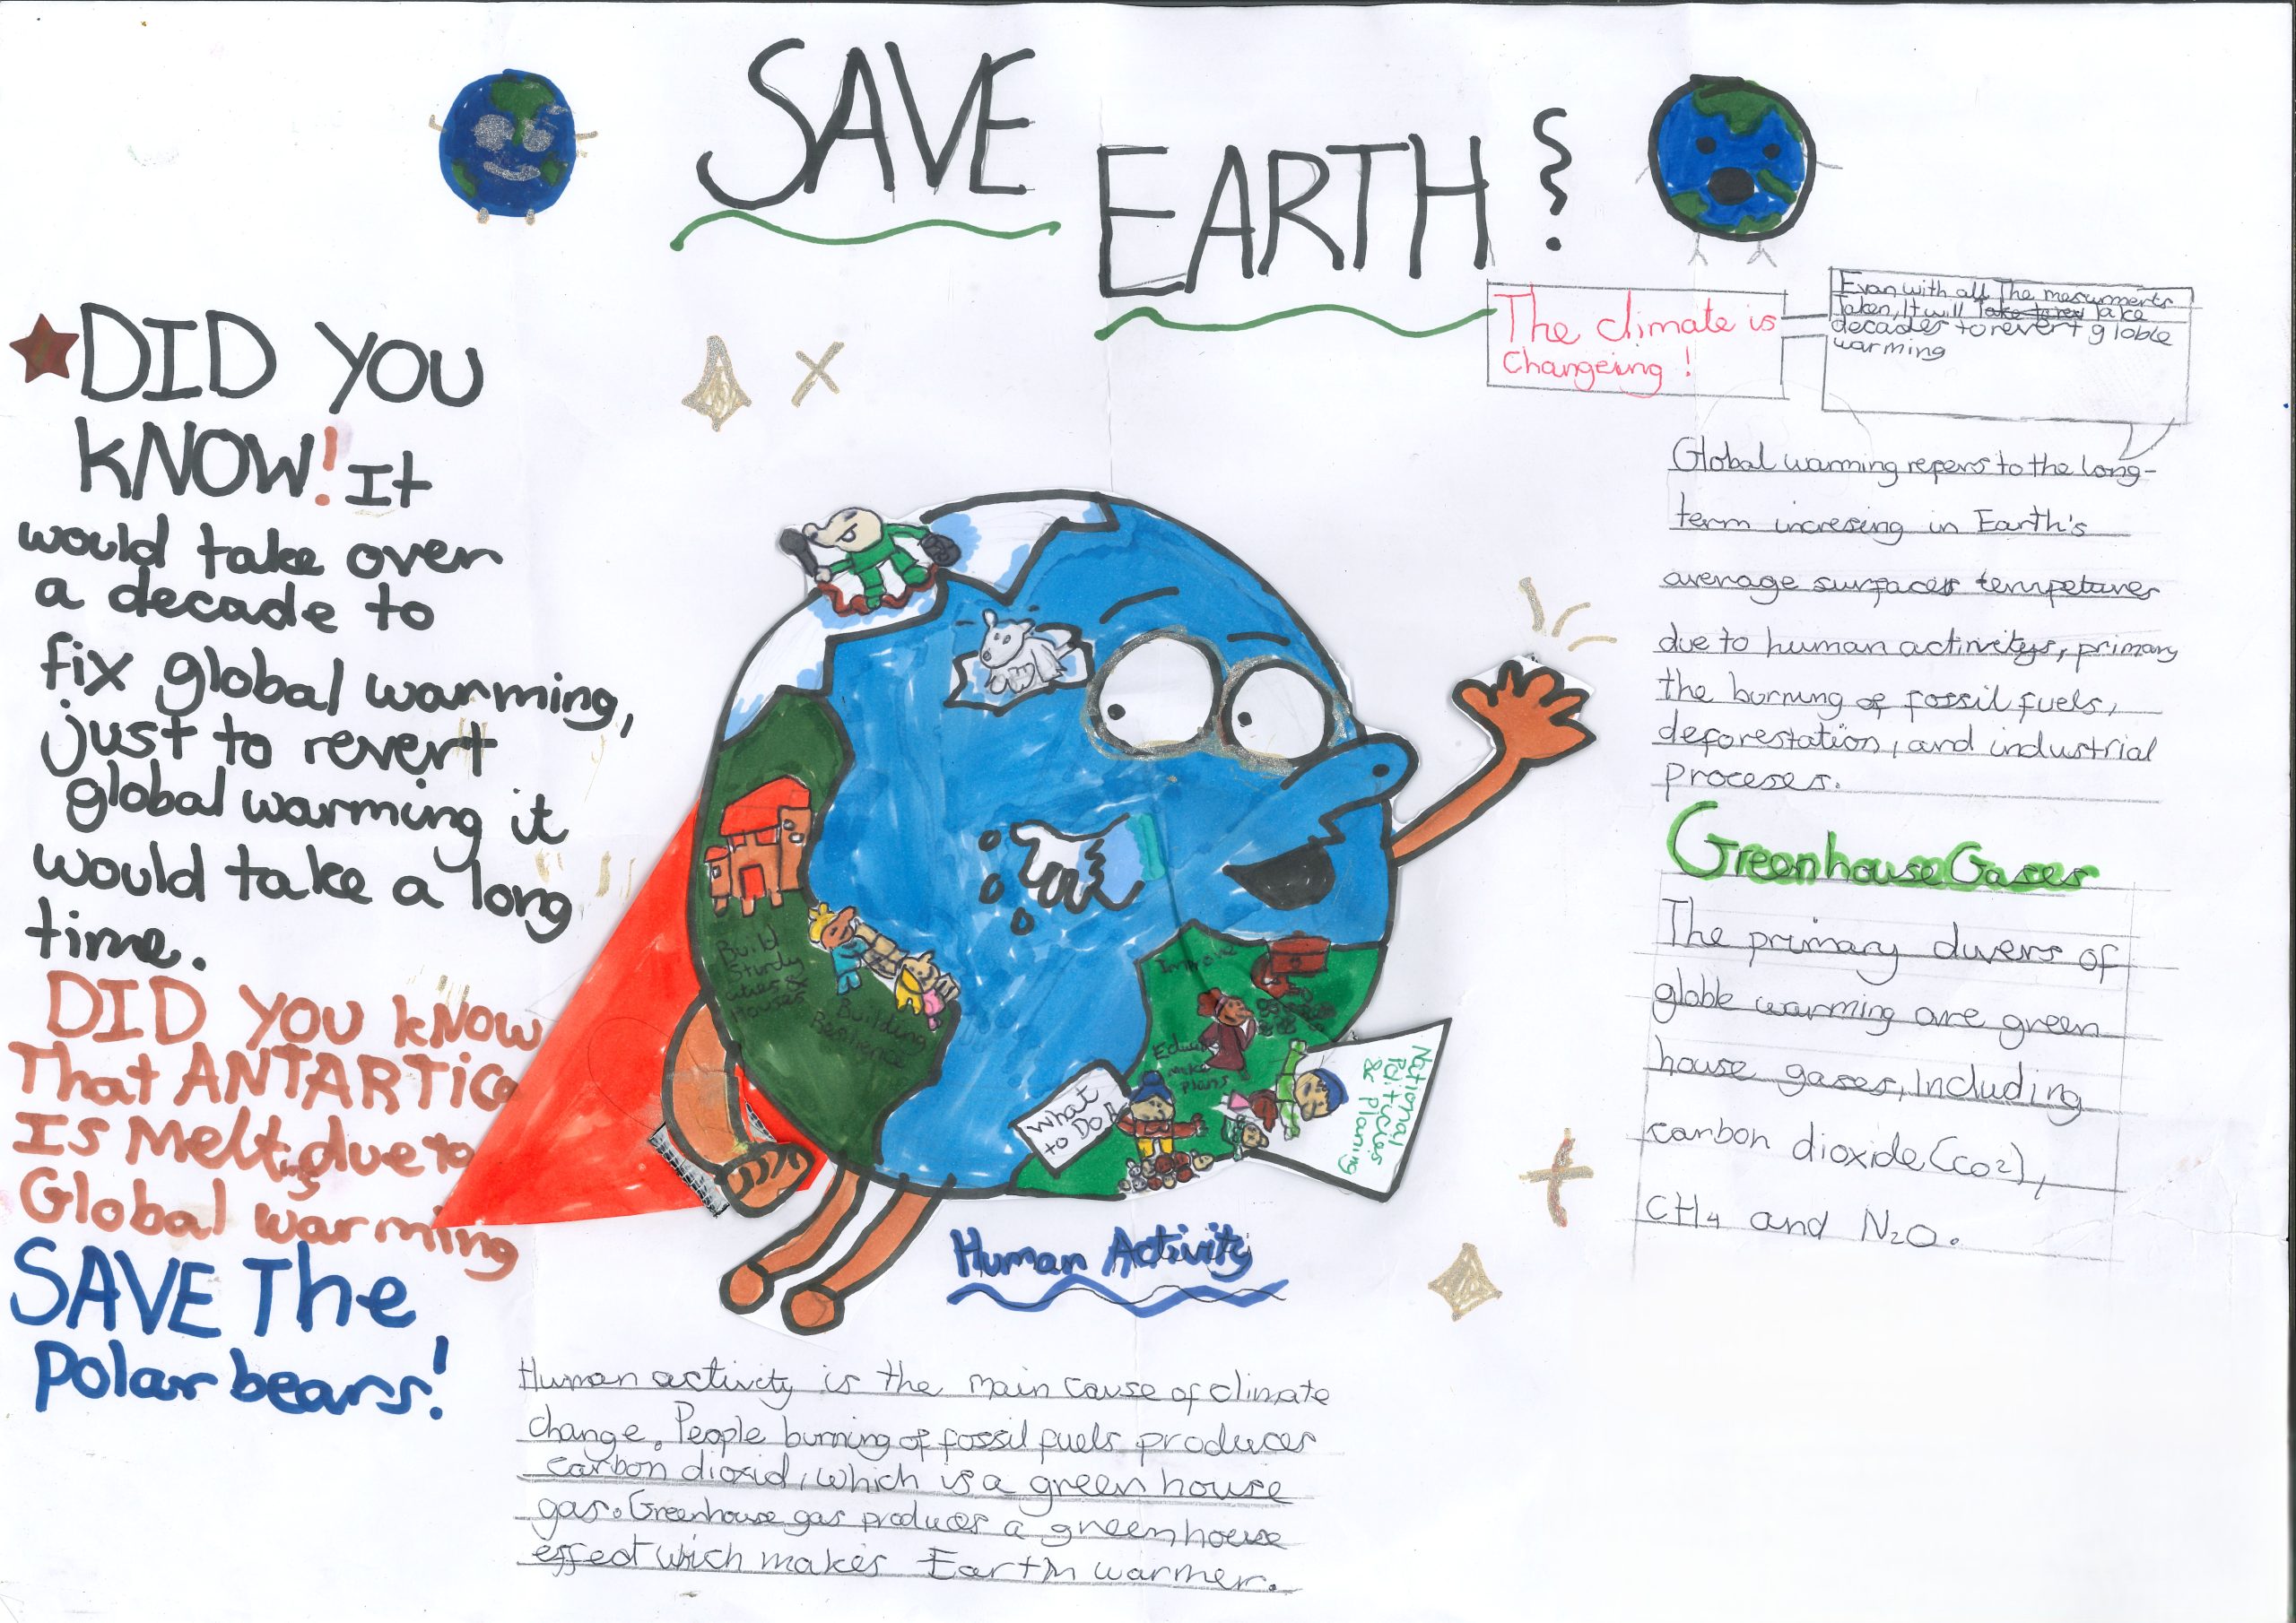 SAVE
EARTH
The climate is
Changeing!
Evan with all The mesurments
Taken, It will take
decades to revert globle
warming
DID YOU
KNOW! It
would take over
a decade to
fix global warming,
just to revert
global warming it
would take a long
time.
DID YOU KNOW
That ANTARTICa
Is Melting due to
Global warming
SAVE The
Polar bears!
Global warming refers to the long-
term incresing in Earth's
average surfaces tempetures
due to human activitys, primary
the burning of fossil fuels,
deforestation, and industrial
proceses.
Greenhouse Gases
The primary divers of
globle warming are green
house gases, Including
carbon dioxide (co2),
CH4 and N2O.
Build
Sturdy
cities &
Houses
Building
Improve
make
plans
What
to Do!!
National
&
Planning
Human Activity
Human activity is the main cause of climate
change. People burning of fossil fuels produces
carbon dioxid, which is a green house
gas. Greenhouse gas produces a greenhouse
effect which makes Earth warmer.